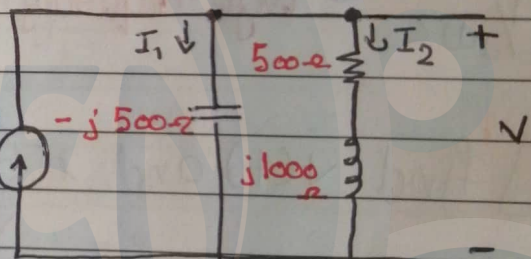 I₁ ↓
500Ω
↓ I₂
+
-j 500Ω
V
j1000
Ω
-